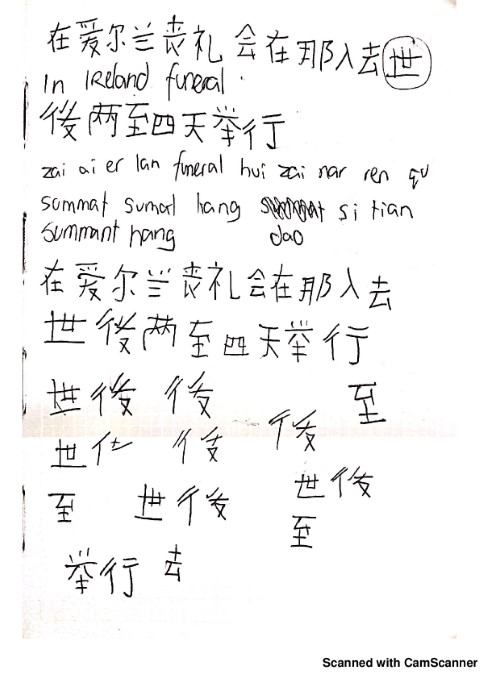 在爱尔兰丧礼会在那人去世
In IReland funeral.
後两至四天举行
zai ai er lan funeral hui zai nar ren qu
summat sumad hang si tian
summant hang dao
在爱尔兰丧礼会在那人去
世後两至四天举行
世後 後 至
世 後 後
至 世後 世後
至
举行 去
Scanned with CamScanner